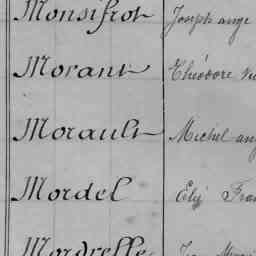 Monsifrot Joseph ange
Morant Théodore
Morault Michel
Mordel Fran
Mordrelle